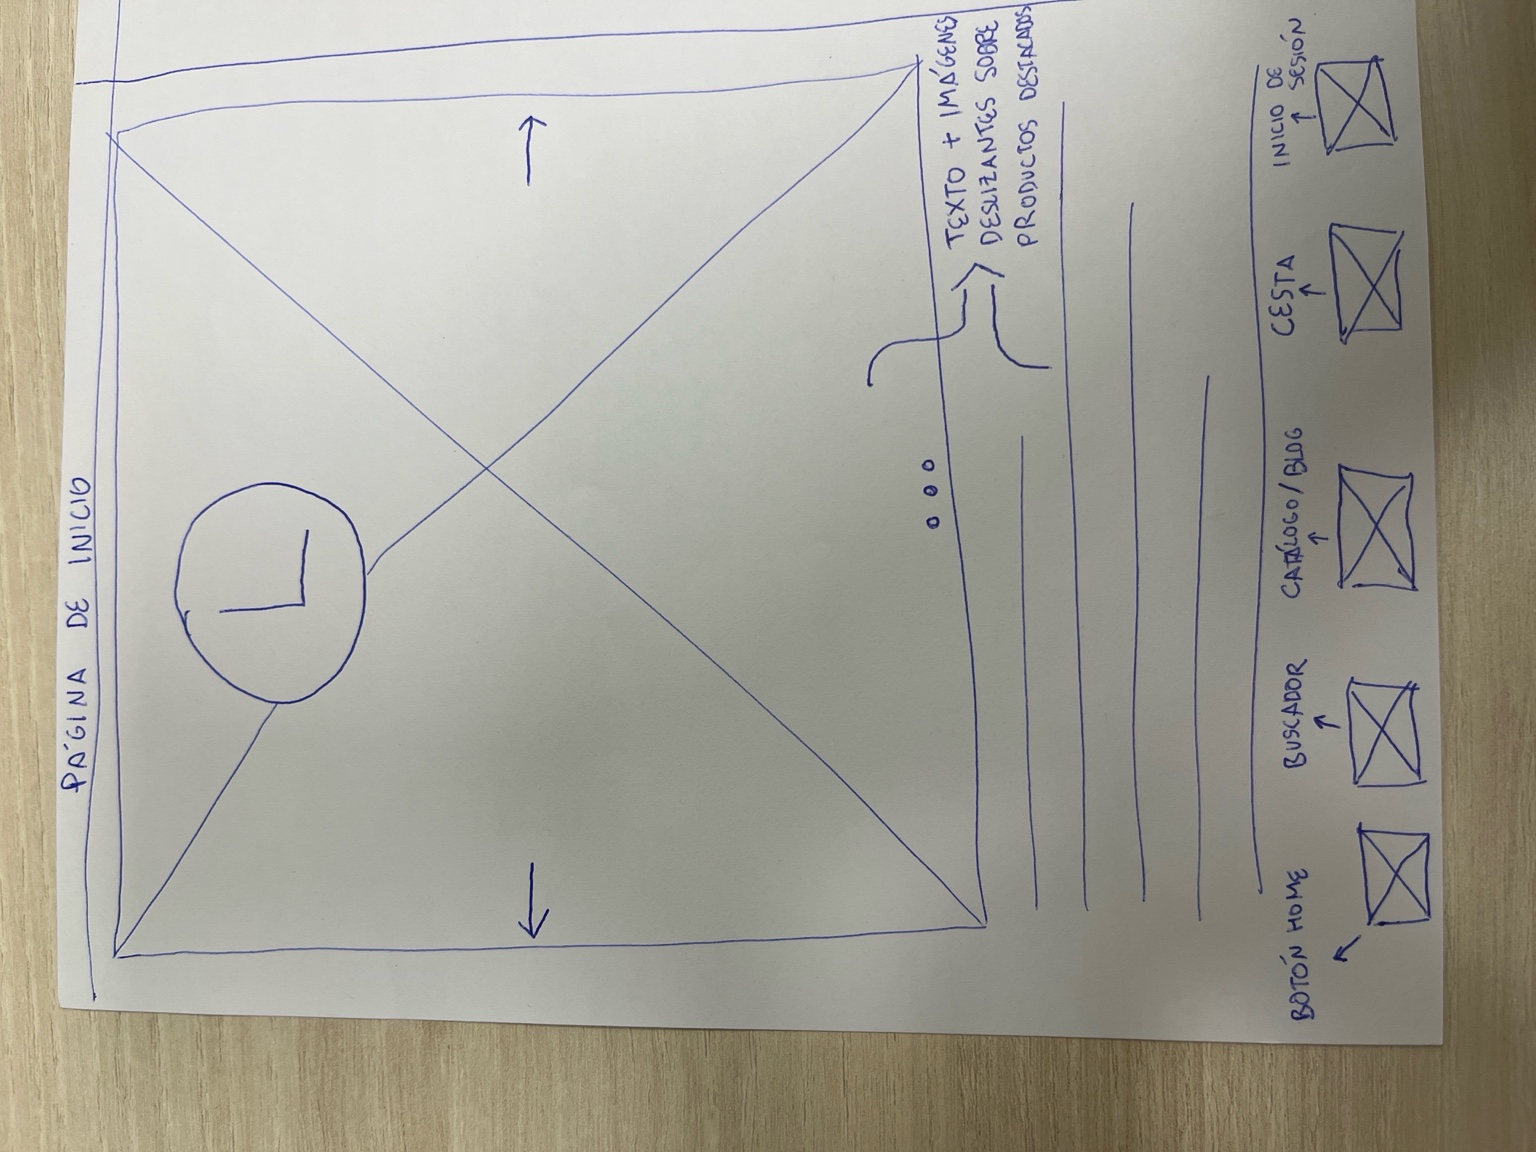 PÁGINA DE INICIO
L
TEXTO + IMÁGENES
DESLIZANTES SOBRE
PRODUCTOS DESTACADOS
BOTÓN HOME
BUSCADOR
CATÁLOGO/BLOG
CESTA
INICIO DE
SESIÓN